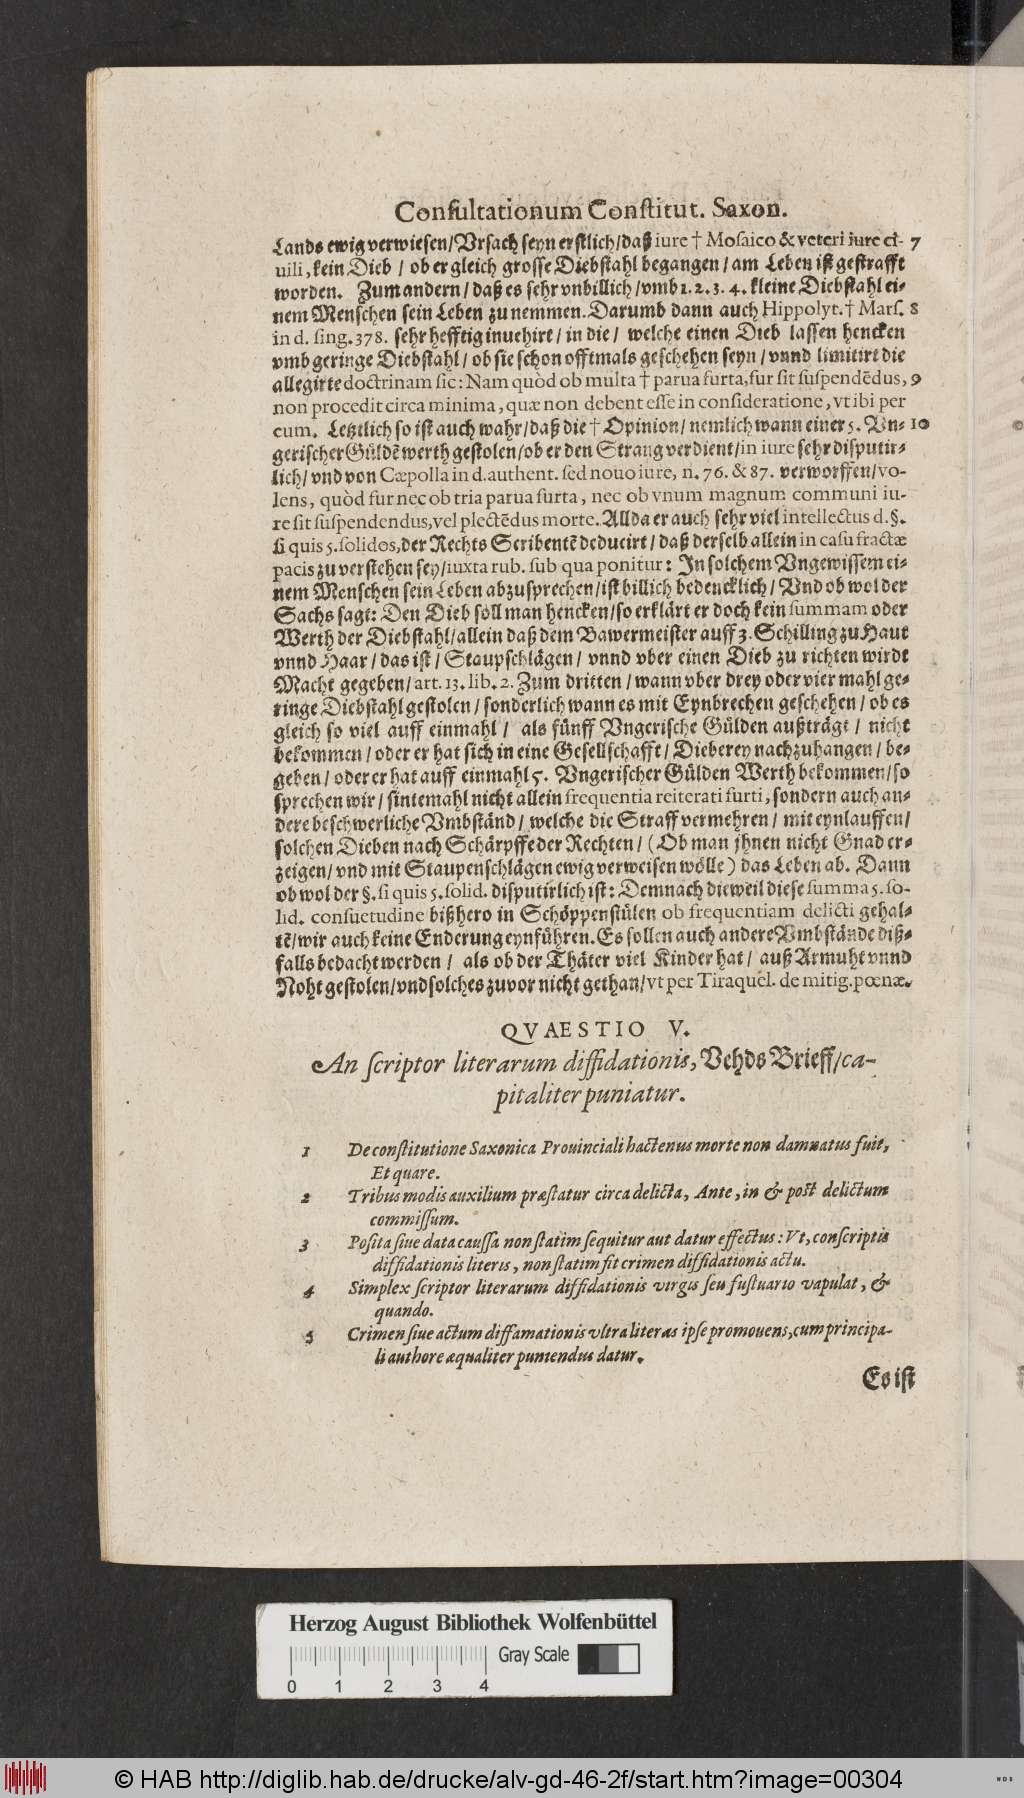 Consultationum Constitut. Saxon.
Lands ewig verwiesen/Vrsach seyn erstlich/daß iure † Mosaico & veteri iure ci- 7
uili, kein Dieb / ob er gleich grosse Diebstahl begangen / am Leben ist gestrafft
worden. Zum andern / daß es sehr vnbillich/vmb 1. 2. 3. 4. kleine Diebstahl ei-
nem Menschen sein Leben zu nemmen. Darumb dann auch Hippolyt. † Mars. 8
in d. sing. 378. sehr hefftig inuehirt / in die / welche einen Dieb lassen hencken
vmb geringe Diebstahl / ob sie schon offtmals geschehen seyn / vnnd limitirt die
allegirte doctrinam sic: Nam quòd ob multa † parua furta, fur sit suspendẽdus, 9
non procedit circa minima, quæ non debent esse in consideratione, vt ibi per
eum. Letztlich so ist auch wahr/daß die † Opinion/ nemlich wann einer 5. Vn- 10
gerischer Güldẽ werth gestolen/ob er den Strang verdient/in iure sehr disputir-
lich/ vnd von Cæpolla in d. authent. sed nouo iure, n. 76. & 87. verworffen/vo-
lens, quòd fur nec ob tria parua furta, nec ob vnum magnum communi iu-
re sit suspendendus, vel plectẽdus morte. Allda er auch sehr viel intellectus d. §.
si quis 5. solidos, der Rechts Scribentẽ deducirt / daß derselb allein in casu fractæ
pacis zu verstehen sey/iuxta rub. sub qua ponitur: In solchem Vngewissem ei-
nem Menschen sein Leben abzusprechen/ist billich bedencklich/ Vnd ob wol der
Sachs sagt: Den Dieb soll man hencken/so erklärt er doch kein summam oder
Werth der Diebstahl/allein daß dem Bawermeister auff 3. Schilling zu Haut
vnnd Haar / das ist / Staupschlägen / vnnd vber einen Dieb zu richten wirdt
Macht gegeben/ art. 13. lib. 2. Zum dritten / wann vber drey oder vier mahl ge-
ringe Diebstahl gestolen / sonderlich wann es mit Eynbrechen geschehen / ob es
gleich so viel auff einmahl / als fünff Vngerische Gülden außträgt / nicht
bekommen / oder er hat sich in eine Gesellschafft / Dieberey nachzuhangen / be-
geben / oder er hat auff einmahl 5. Vngerischer Gülden Werth bekommen/so
sprechen wir / sintemahl nicht allein frequentia reiterati furti, sondern auch an-
dere beschwerliche Vmbständ / welche die Straff vermehren / mit eynlauffen/
solchen Dieben nach Schärpffe der Rechten / (Ob man jhnen nicht Gnad er-
zeigen/ vnd mit Staupenschlägen ewig verweisen wölle) das Leben ab. Dann
ob wol der §. si quis 5. solid. disputirlich ist: Demnach dieweil diese summa 5. so-
lid. consuetudine bißhero in Schöppenstülen ob frequentiam delicti gehal-
tẽ/wir auch keine Enderung eynführen. Es sollen auch andere Vmbstände diß-
falls bedacht werden / als ob der Thäter viel Kinder hat / auß Armuht vnnd
Noht gestolen/vnd solches zuvor nicht gethan/vt per Tiraquel. de mitig. pœnæ.
QVAESTIO V.
An scriptor literarum diffidationis, Vehds Brieff/ca-
pitaliter puniatur.
1 De constitutione Saxonica Prouinciali hactenus morte non damnatus fuit,
Et quare.
2 Tribus modis auxilium præstatur circa delicta, Ante, in & post delictum
commissum.
3 Posita siue data caussa non statim sequitur aut datur effectus: Vt, conscriptis
diffidationis literis, non statim fit crimen diffidationis actu.
4 Simplex scriptor literarum diffidationis virgis seu fustuario vapulat, &
quando.
5 Crimen siue actum diffamationis vltra literas ipse promouens, cum principa-
li authore æqualiter puniendus datur.
Es ist
Herzog August Bibliothek Wolfenbüttel
Gray Scale
0 1 2 3 4
© HAB http://diglib.hab.de/drucke/alv-gd-46-2f/start.htm?image=00304